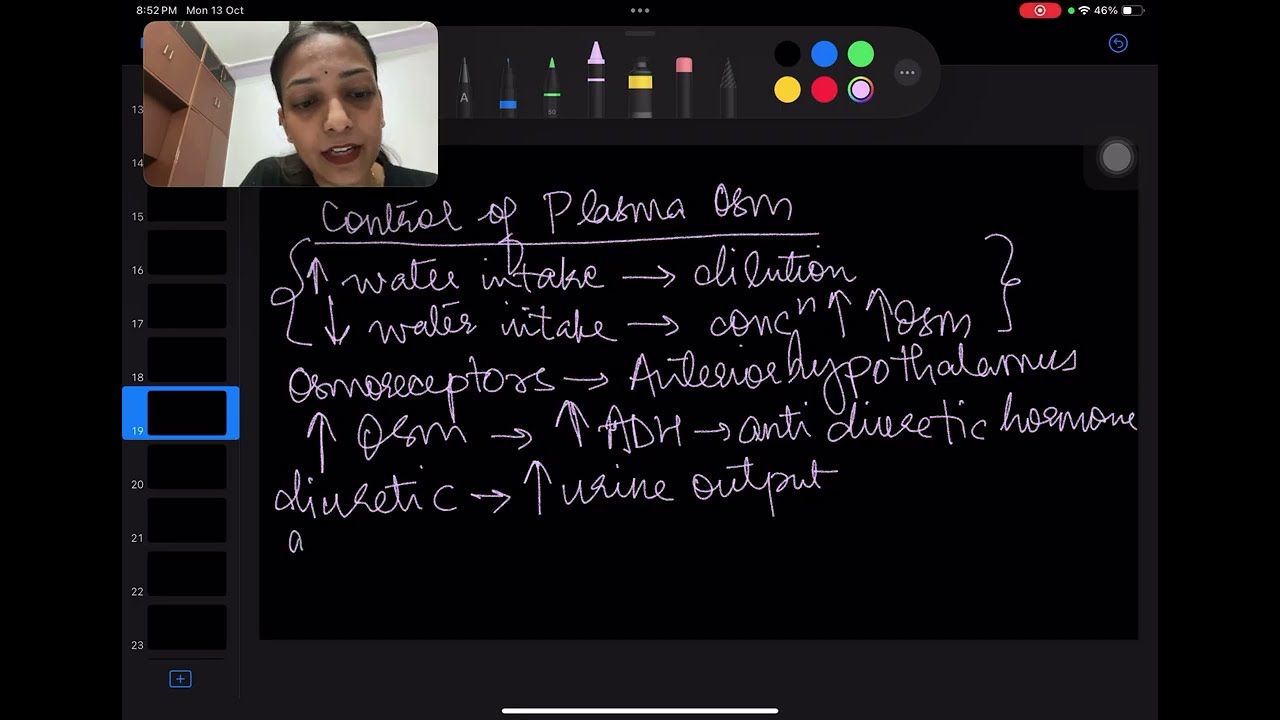 8:52 PM Mon 13 Oct
46%
A
50
13
14
15
16
17
18
19
20
21
22
23
Control of Plasma Osm
↑ water intake → dilution
↓ water intake → concⁿ ↑ ↑ Osm
Osmoreceptors → Anterior hypothalamus
↑ Osm → ↑ ADH → anti diuretic hormone
diuretic → ↑ urine output
a